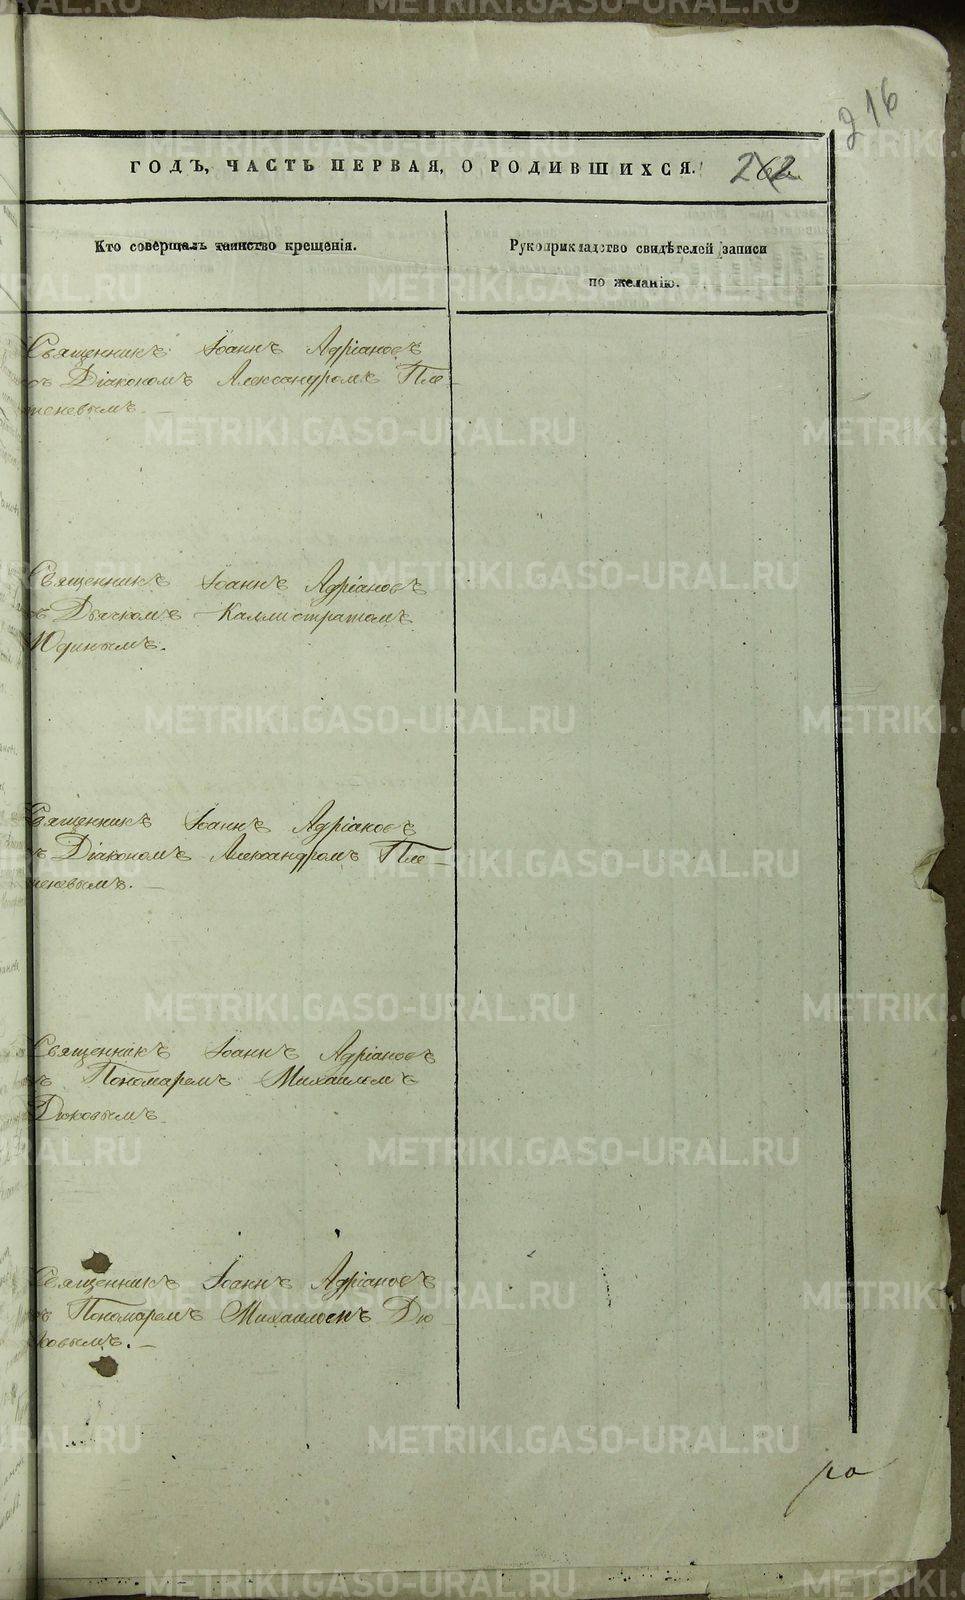 216
ГОДЪ, ЧАСТЬ ПЕРВАЯ, О РОДИВШИХСЯ.
Кто совершалъ таинство крещенія.
Рукоприкладство свидѣтелей записи
по желанію.
Священникъ Іоаннъ Адріановъ
съ Діакономъ Александромъ Пле-
теневымъ.
Священникъ Іоаннъ Адріановъ
съ Дьячкомъ Каллистратомъ
Юдинымъ.
Священникъ Іоаннъ Адріановъ
съ Діакономъ Александромъ Пле-
теневымъ.
Священникъ Іоаннъ Адріановъ
съ Пономаремъ Михаиломъ
Дюковымъ
Священникъ Іоаннъ Адріановъ
съ Пономаремъ Михаиломъ Дю-
ковымъ.
ра
METRIKI.GASO-URAL.RU